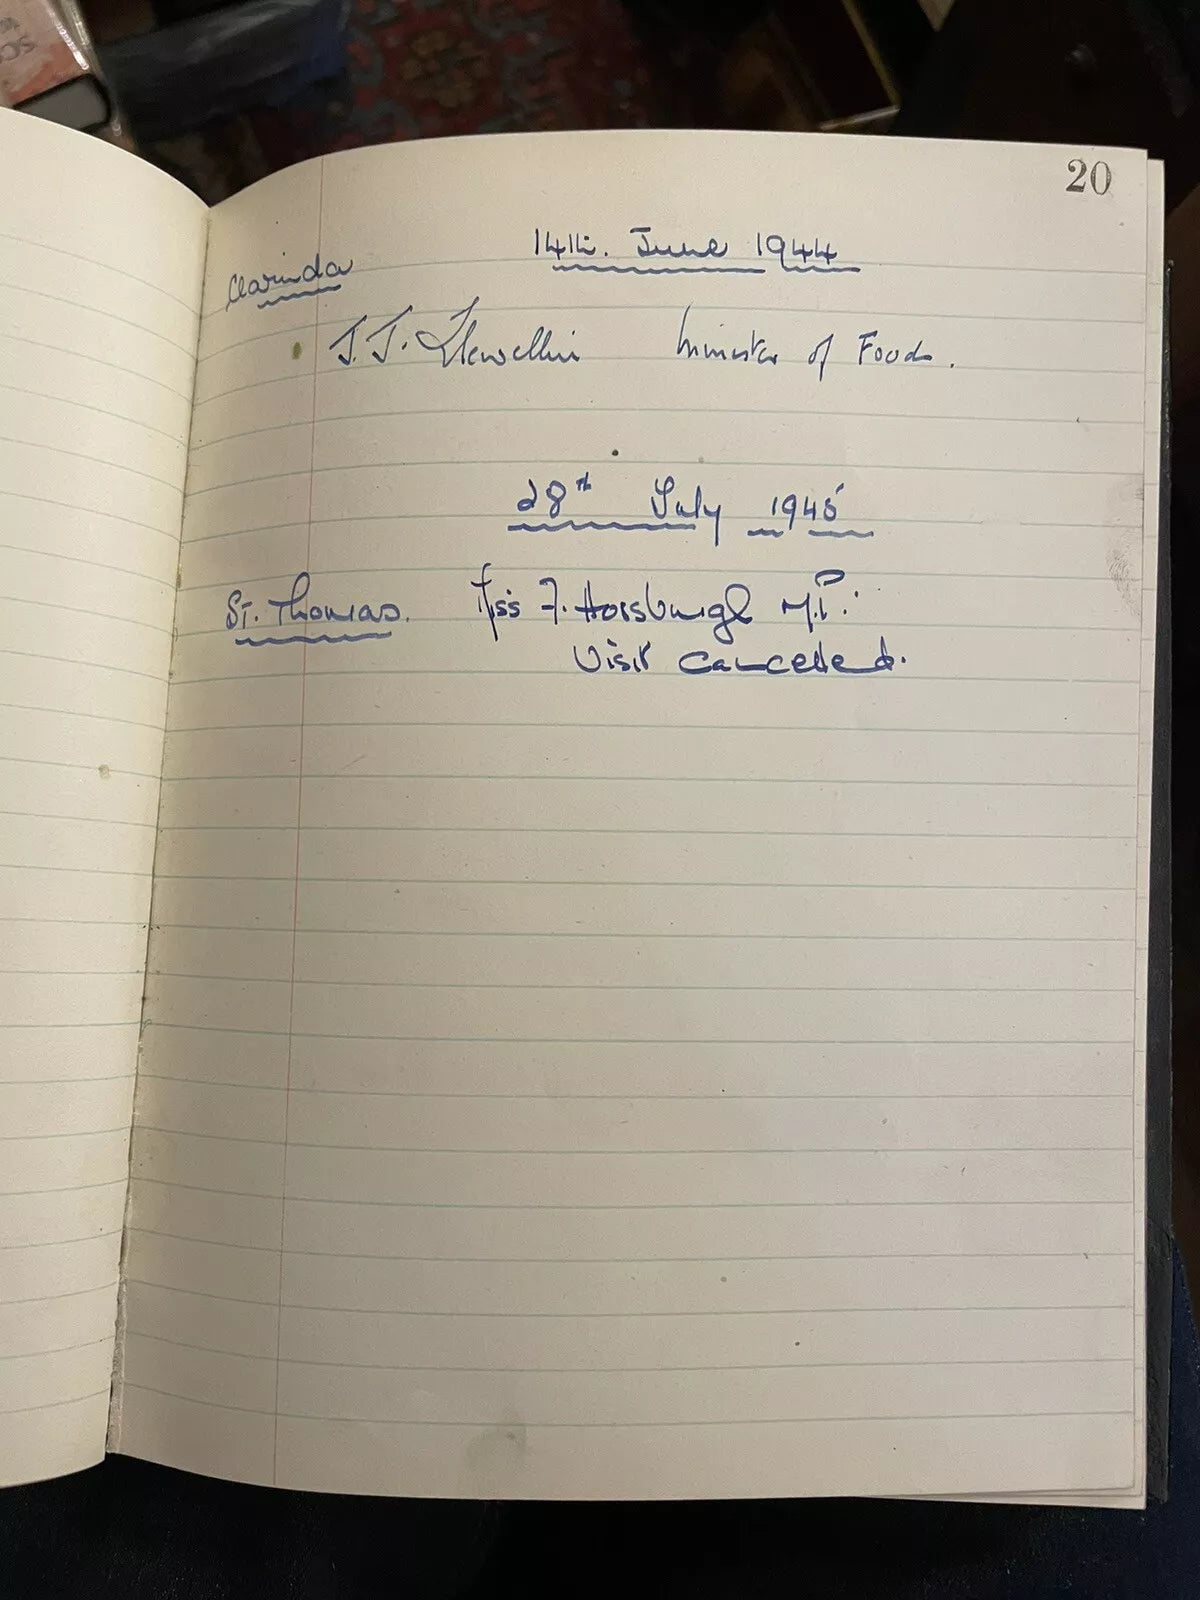 20
14th. June 1944
Clarinda
J.J. Llewellin Minister of Food.
28th July 1945
St. Thomas. Miss F. Horsbrugh M.P.
Visit Cancelled.